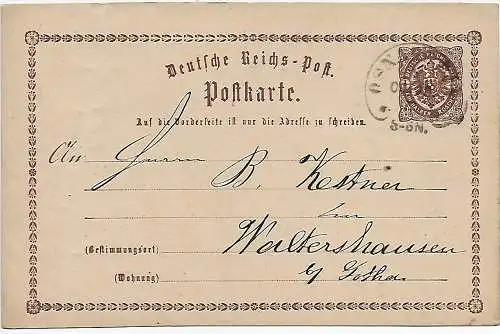 Deutsche Reichs-Post.
Postkarte.
Auf die Vorderseite ist nur die Adresse zu schreiben.
5-6N.
An Herrn B. Kestner
in
(Bestimmungsort) Waltershausen
(Wohnung) b/ Gotha